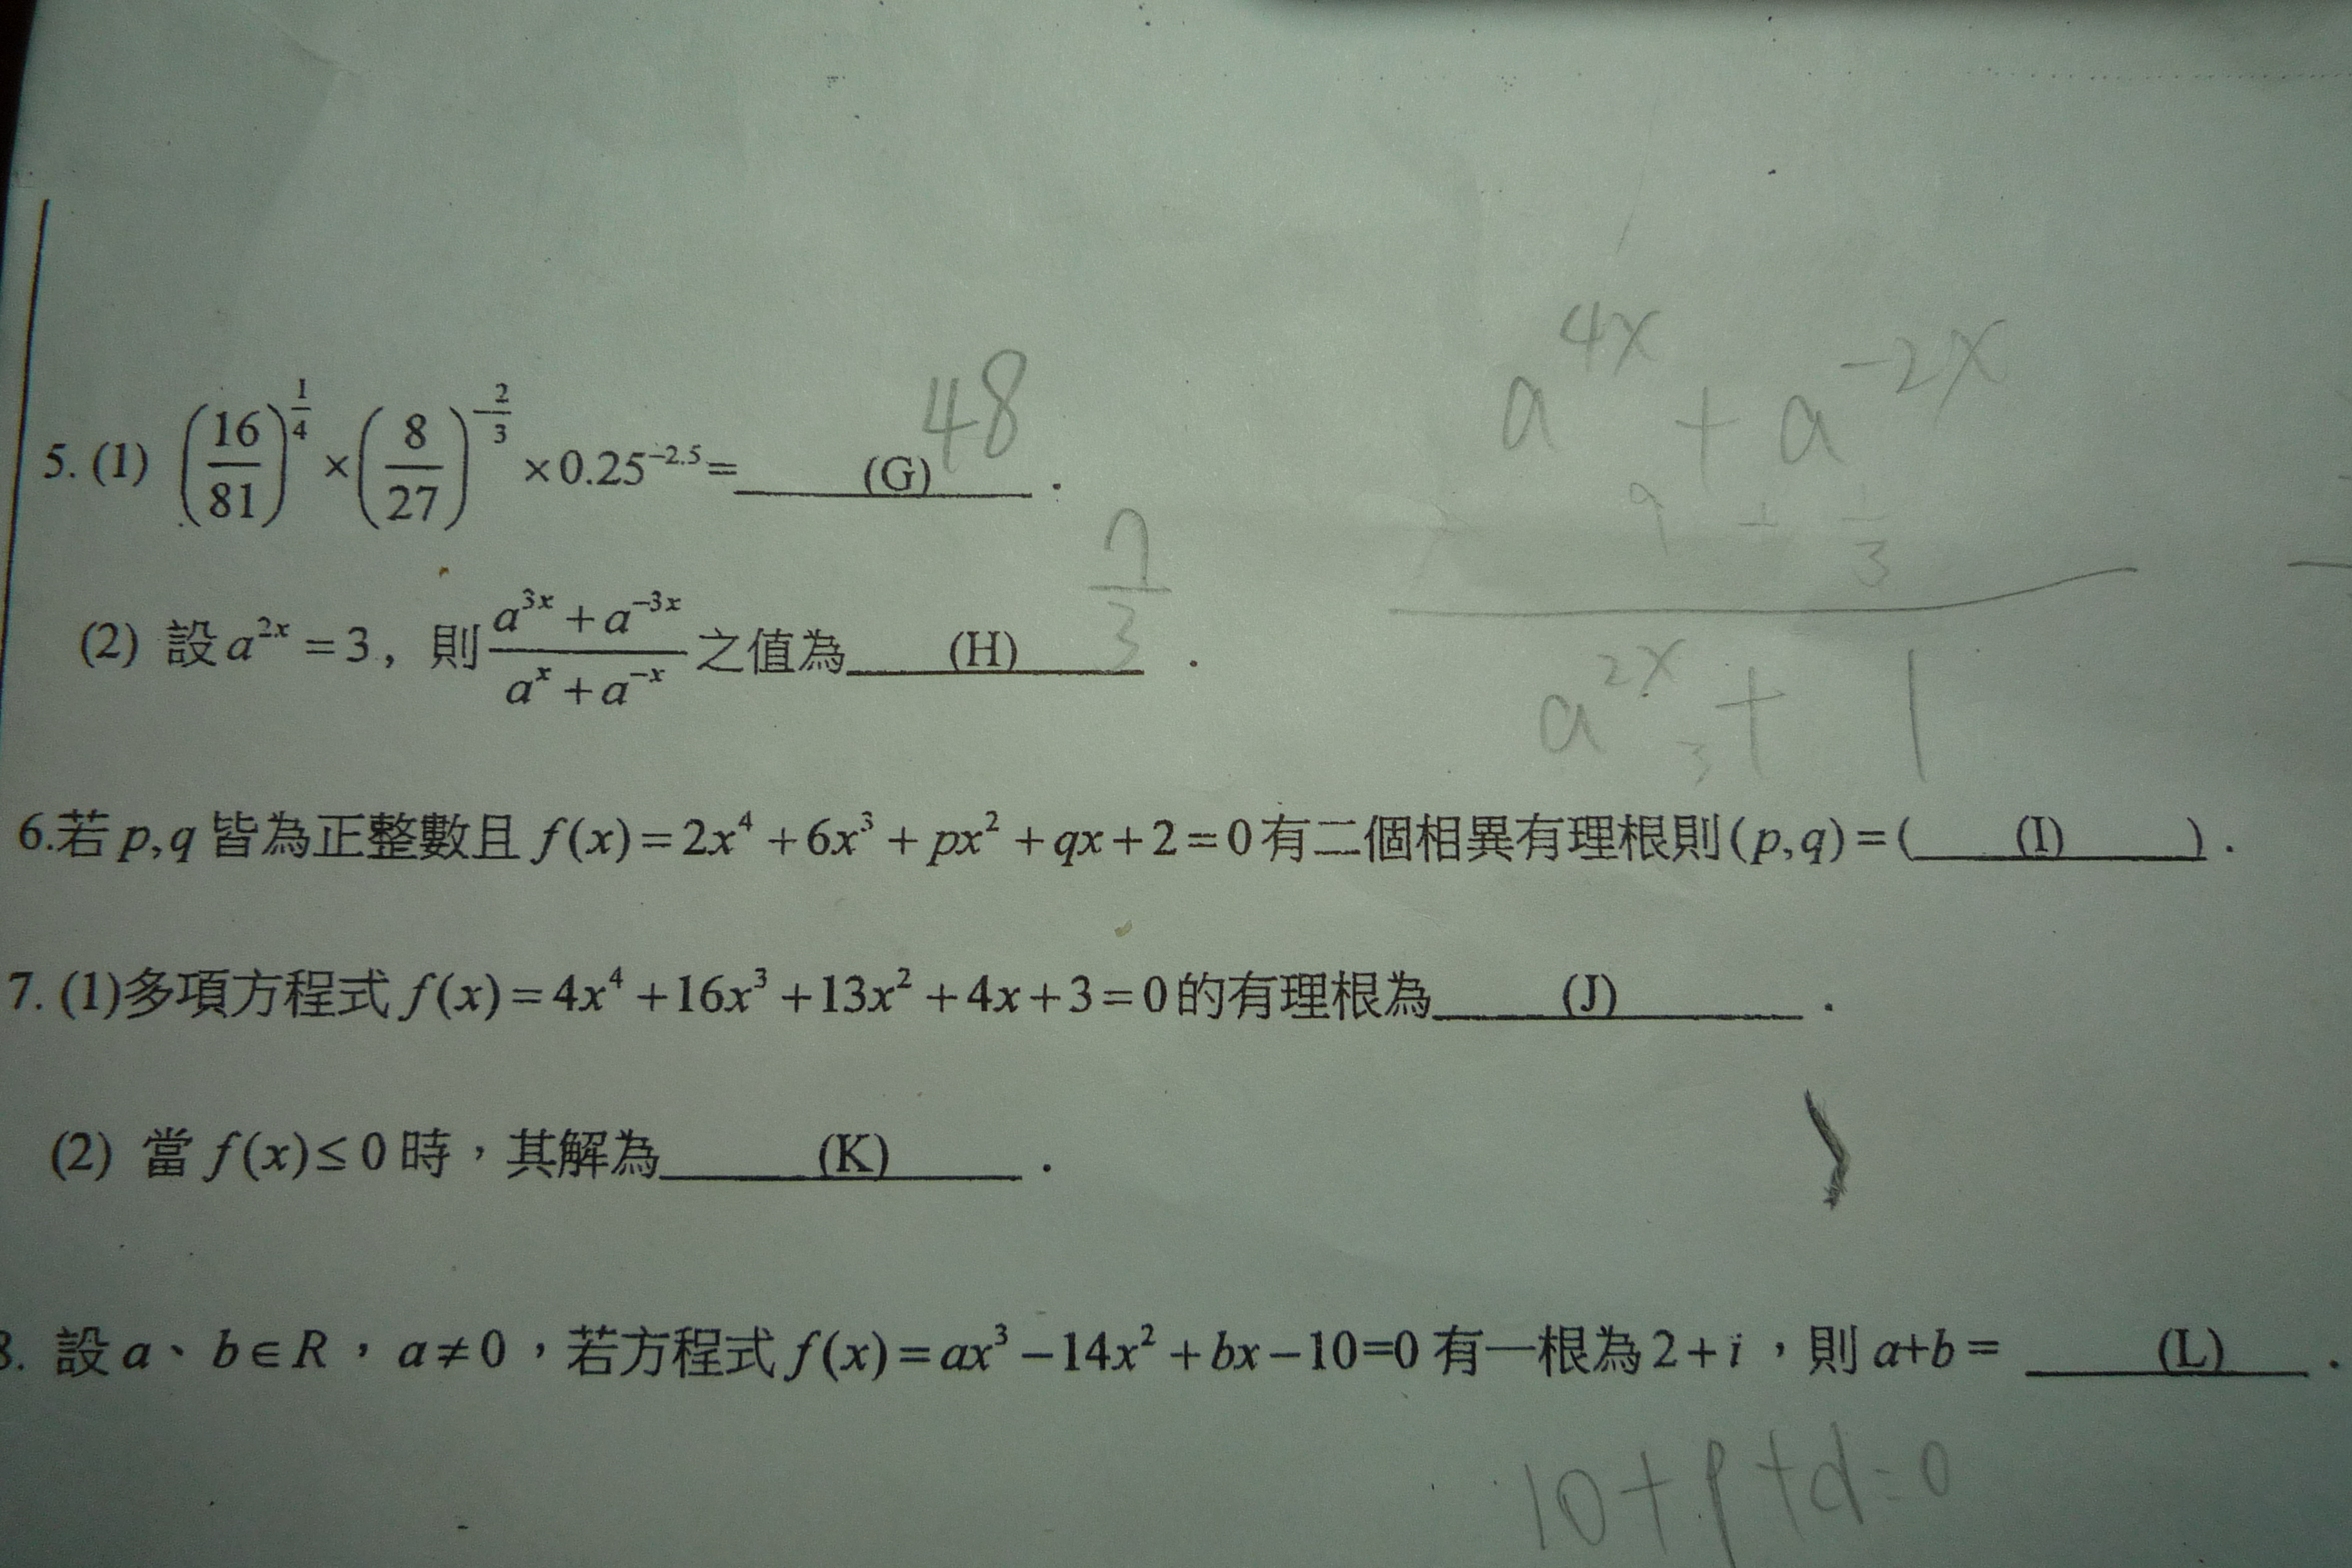 5. (1) (16/81)^(1/4) × (8/27)^(-2/3) × 0.25^(-2.5) = (G) 48 .
(2) 設 a^(2x) = 3, 則 (a^(3x) + a^(-3x))/(a^x + a^(-x)) 之值為 (H) 7/3 .
a^(4x) + a^(-2x)
9 + 1/3
a^(2x) + 1
3
6.若 p,q 皆為正整數且 f(x) = 2x^4 + 6x^3 + px^2 + qx + 2 = 0 有二個相異有理根則 (p,q) = ( (I) ) .
7. (1)多項方程式 f(x) = 4x^4 + 16x^3 + 13x^2 + 4x + 3 = 0 的有理根為 (J) .
(2) 當 f(x) ≤ 0 時，其解為 (K) .
8. 設 a、b∈R，a≠0，若方程式 f(x) = ax^3 − 14x^2 + bx − 10=0 有一根為 2 + i，則 a+b = (L) .
10+p+q=0